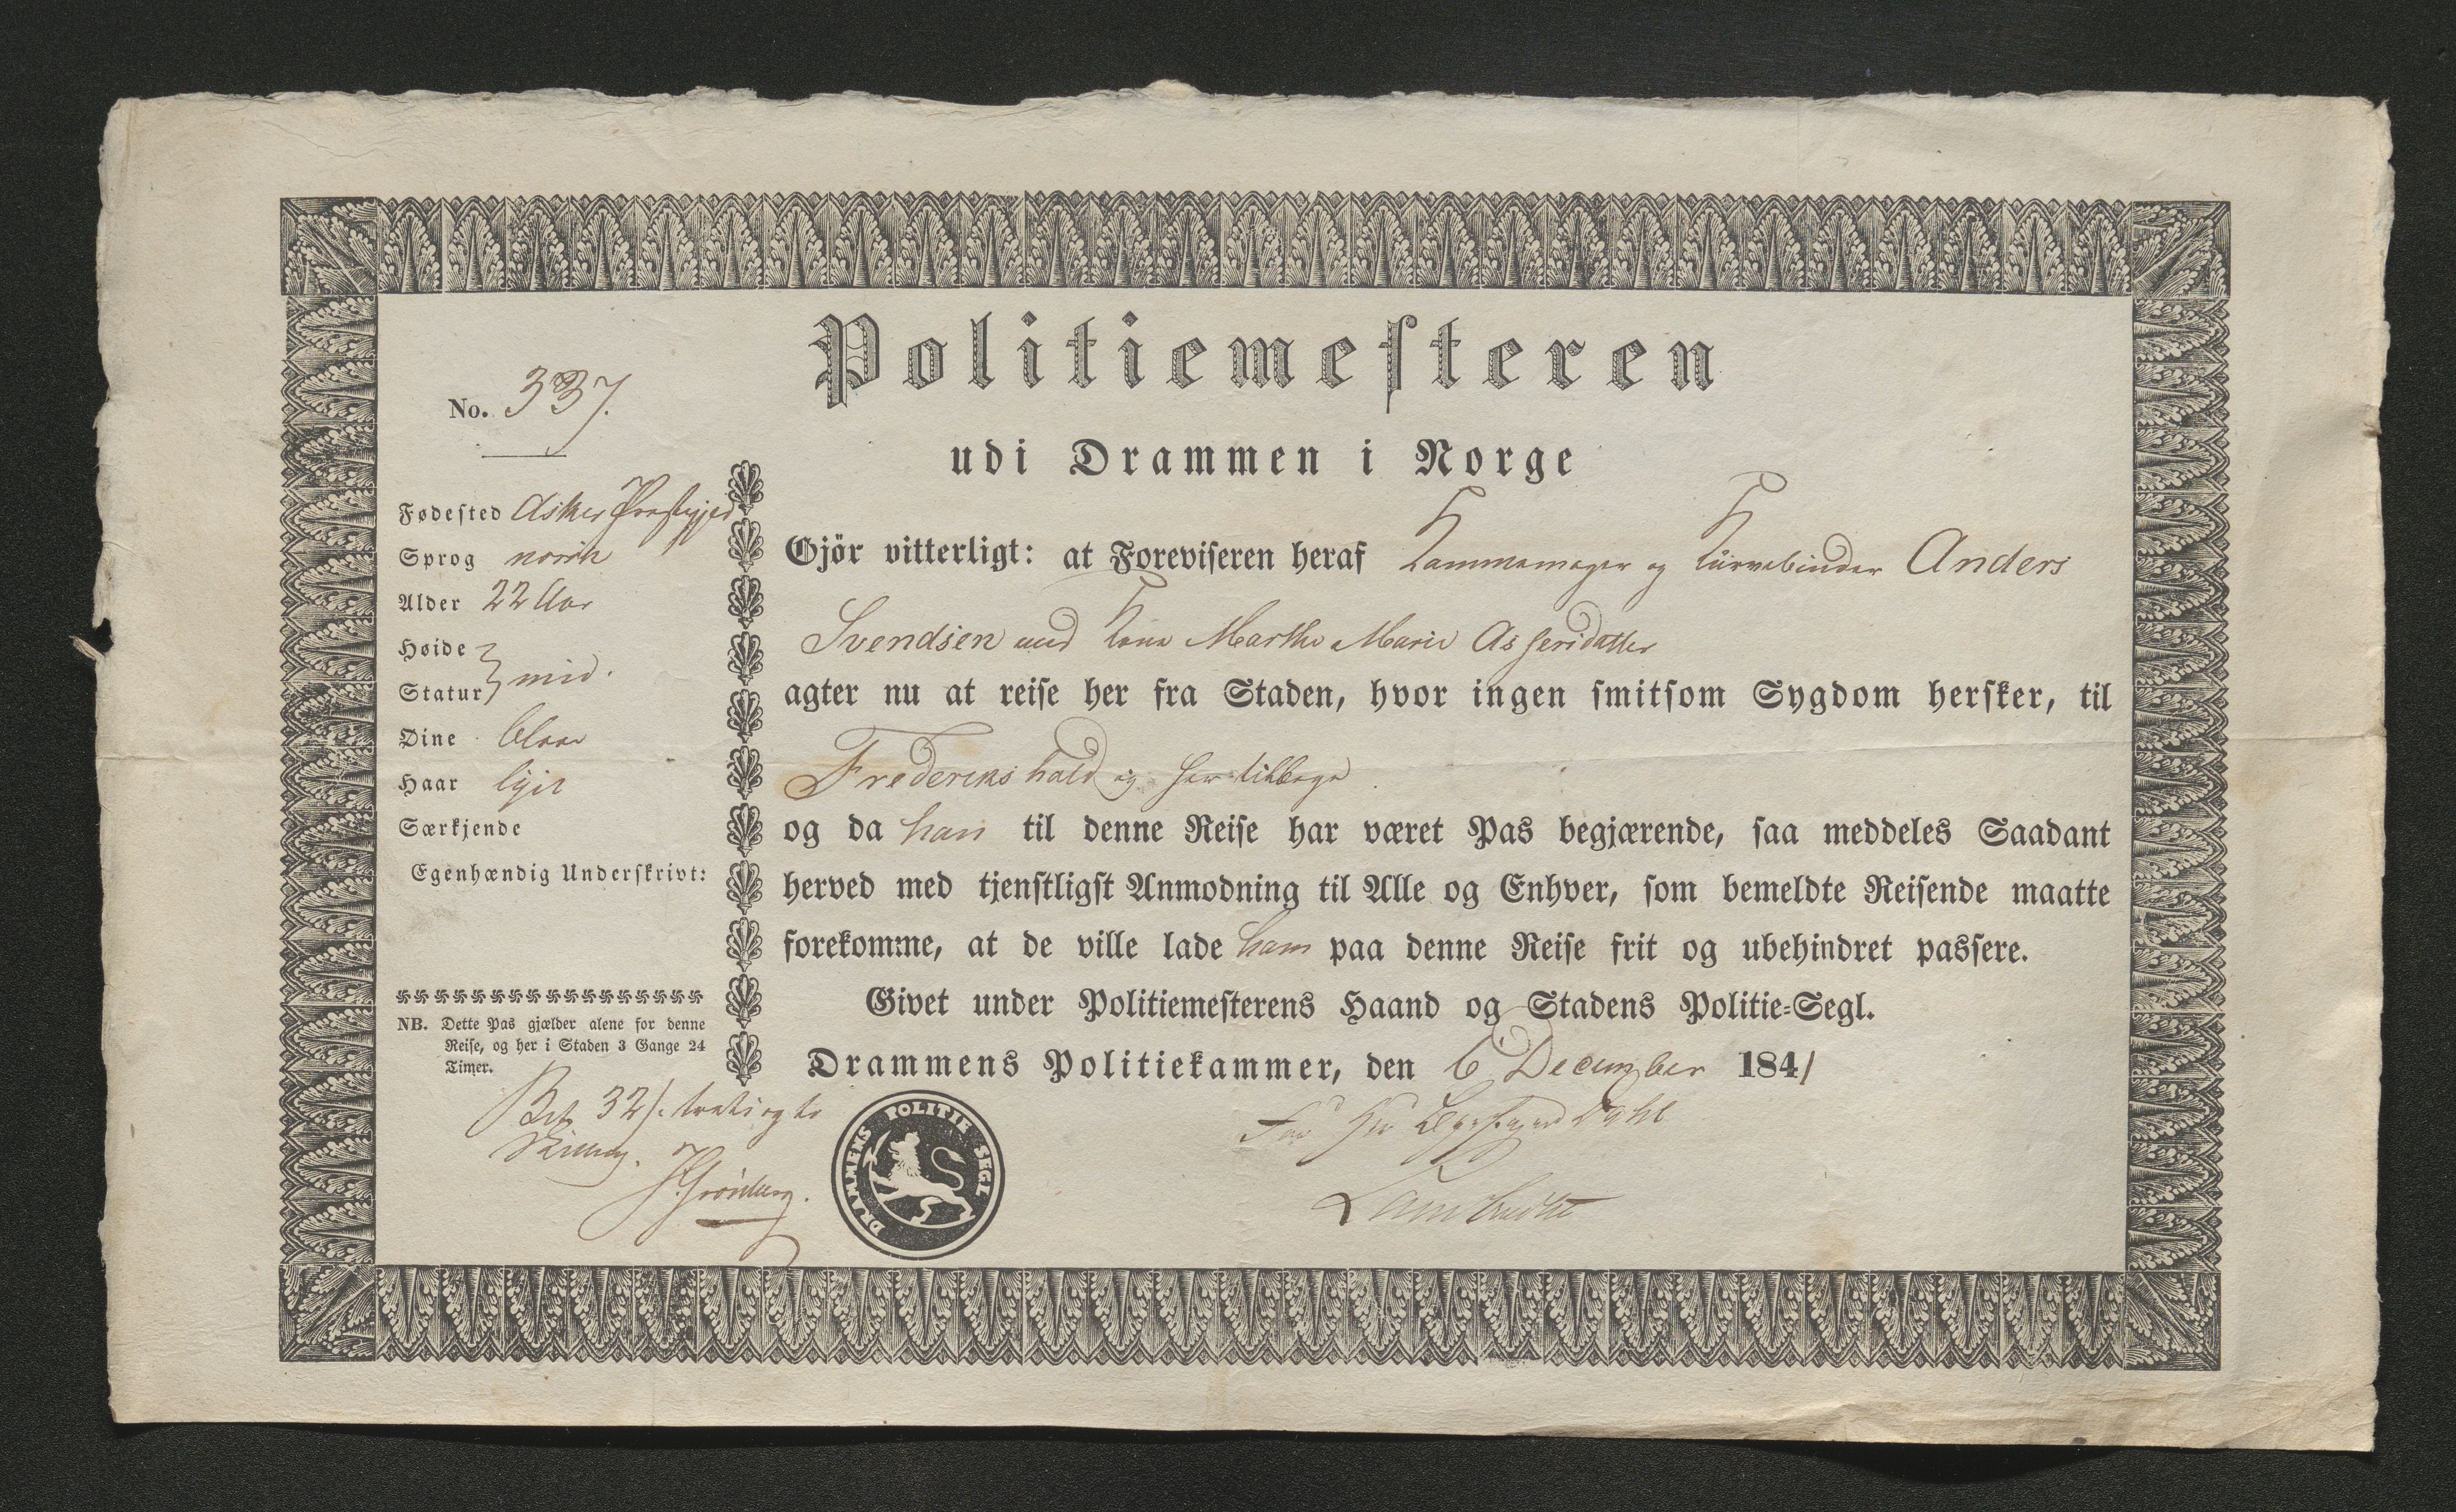 Politiemesteren
udi Drammen i Norge
No. 337.
Fødested Asker Præstegjed
Sprog norsk
Alder 22 Aar
Høide
Statur } mid.
Øine blaae
Haar lyst
Særkjende
Egenhændig Underskrivt:
NB. Dette Pas gjælder alene for denne
Reise, og her i Staden 3 Gange 24
Timer.
Bet 32 s. treti og to
Skilling.
Gjör vitterligt: at Foreviseren heraf Kammemager og Kurvebinder Anders
Svendsen med Kone Marthe Marie Assersdatter
agter nu at reise her fra Staden, hvor ingen smitsom Sygdom hersker, til
Frederikshald og her tilbage
og da han til denne Reise har været Pas begjærende, saa meddeles Saadant
herved med tjenstligst Anmodning til Alle og Enhver, som bemeldte Reisende maatte
forekomme, at de ville lade ham paa denne Reise frit og ubehindret passere.
Givet under Politiemesterens Haand og Stadens Politie-Segl.
Drammens Politiekammer, den 6 December 1841
Dahl
DRAMMENS POLITIE SEGL